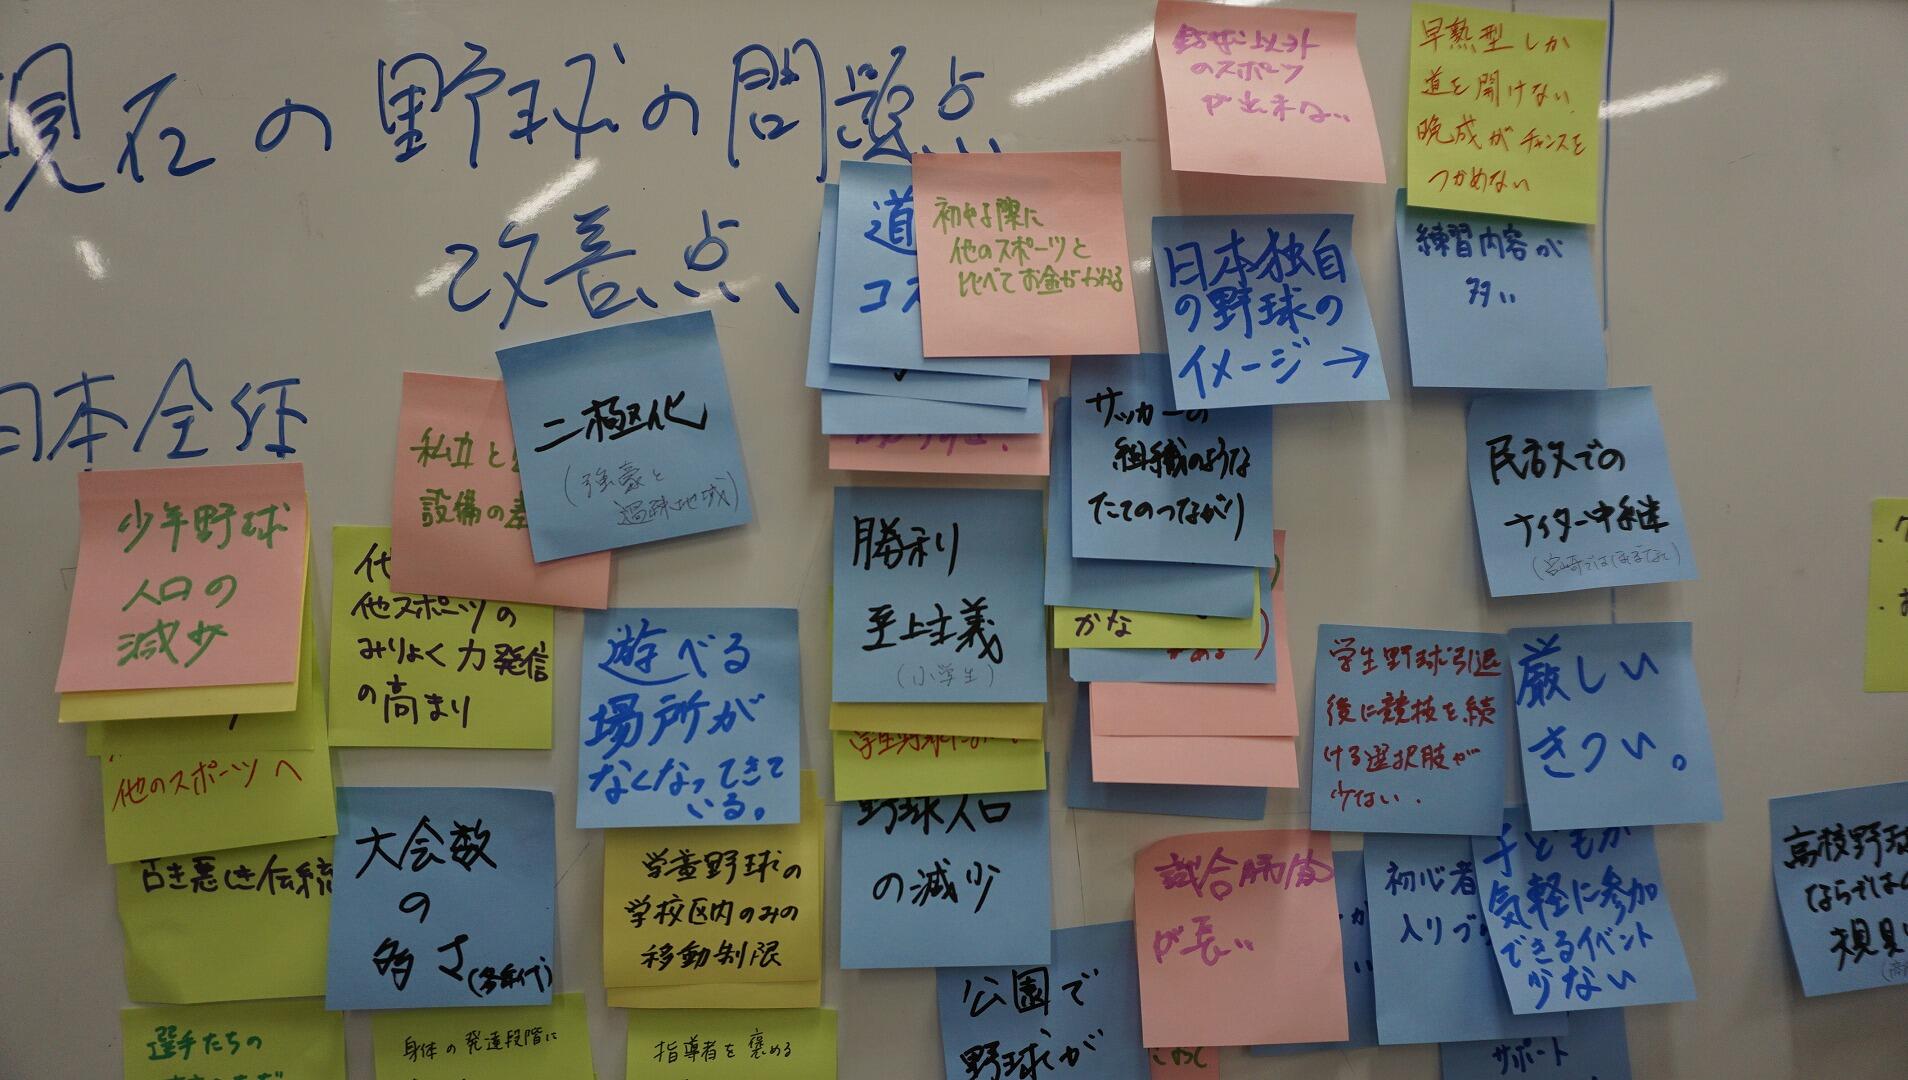 現在の野球の問題点
改善点、
日本全体
少年野球
人口の
減少
他のスポーツへ
古き悪しき伝統
選手たちの
私立と
設備の差
二極化
(強豪と
過疎地域)
他スポーツの
みりょく力発信
の高まり
大会数
の
多さ(各年代)
身体の発達段階に
遊べる
場所が
なくなってきて
いる。
学童野球の
学校区内のみの
移動制限
指導者を褒める
道
コス
初める際に
他のスポーツと
比べてお金がかかる
勝利
至上主義
(小学生)
野球人口
の減少
公園で
野球が
野球以外
のスポーツ
が出来ない
日本独自
の野球の
イメージ→
サッカーの
組織のような
たてのつながり
かな
試合時間
が長い
早熟型しか
道を開けない
晩成がチャンスを
つかめない
練習内容が
多い
民放での
ナイター中継
(宮崎ではほぼなし)
学生野球引退
後に競技を続
ける選択肢が
少ない.
厳しい
きつい。
初心者
入りづ
子どもが
気軽に参加
できるイベント
少ない
サポート
高校野球
ならではの